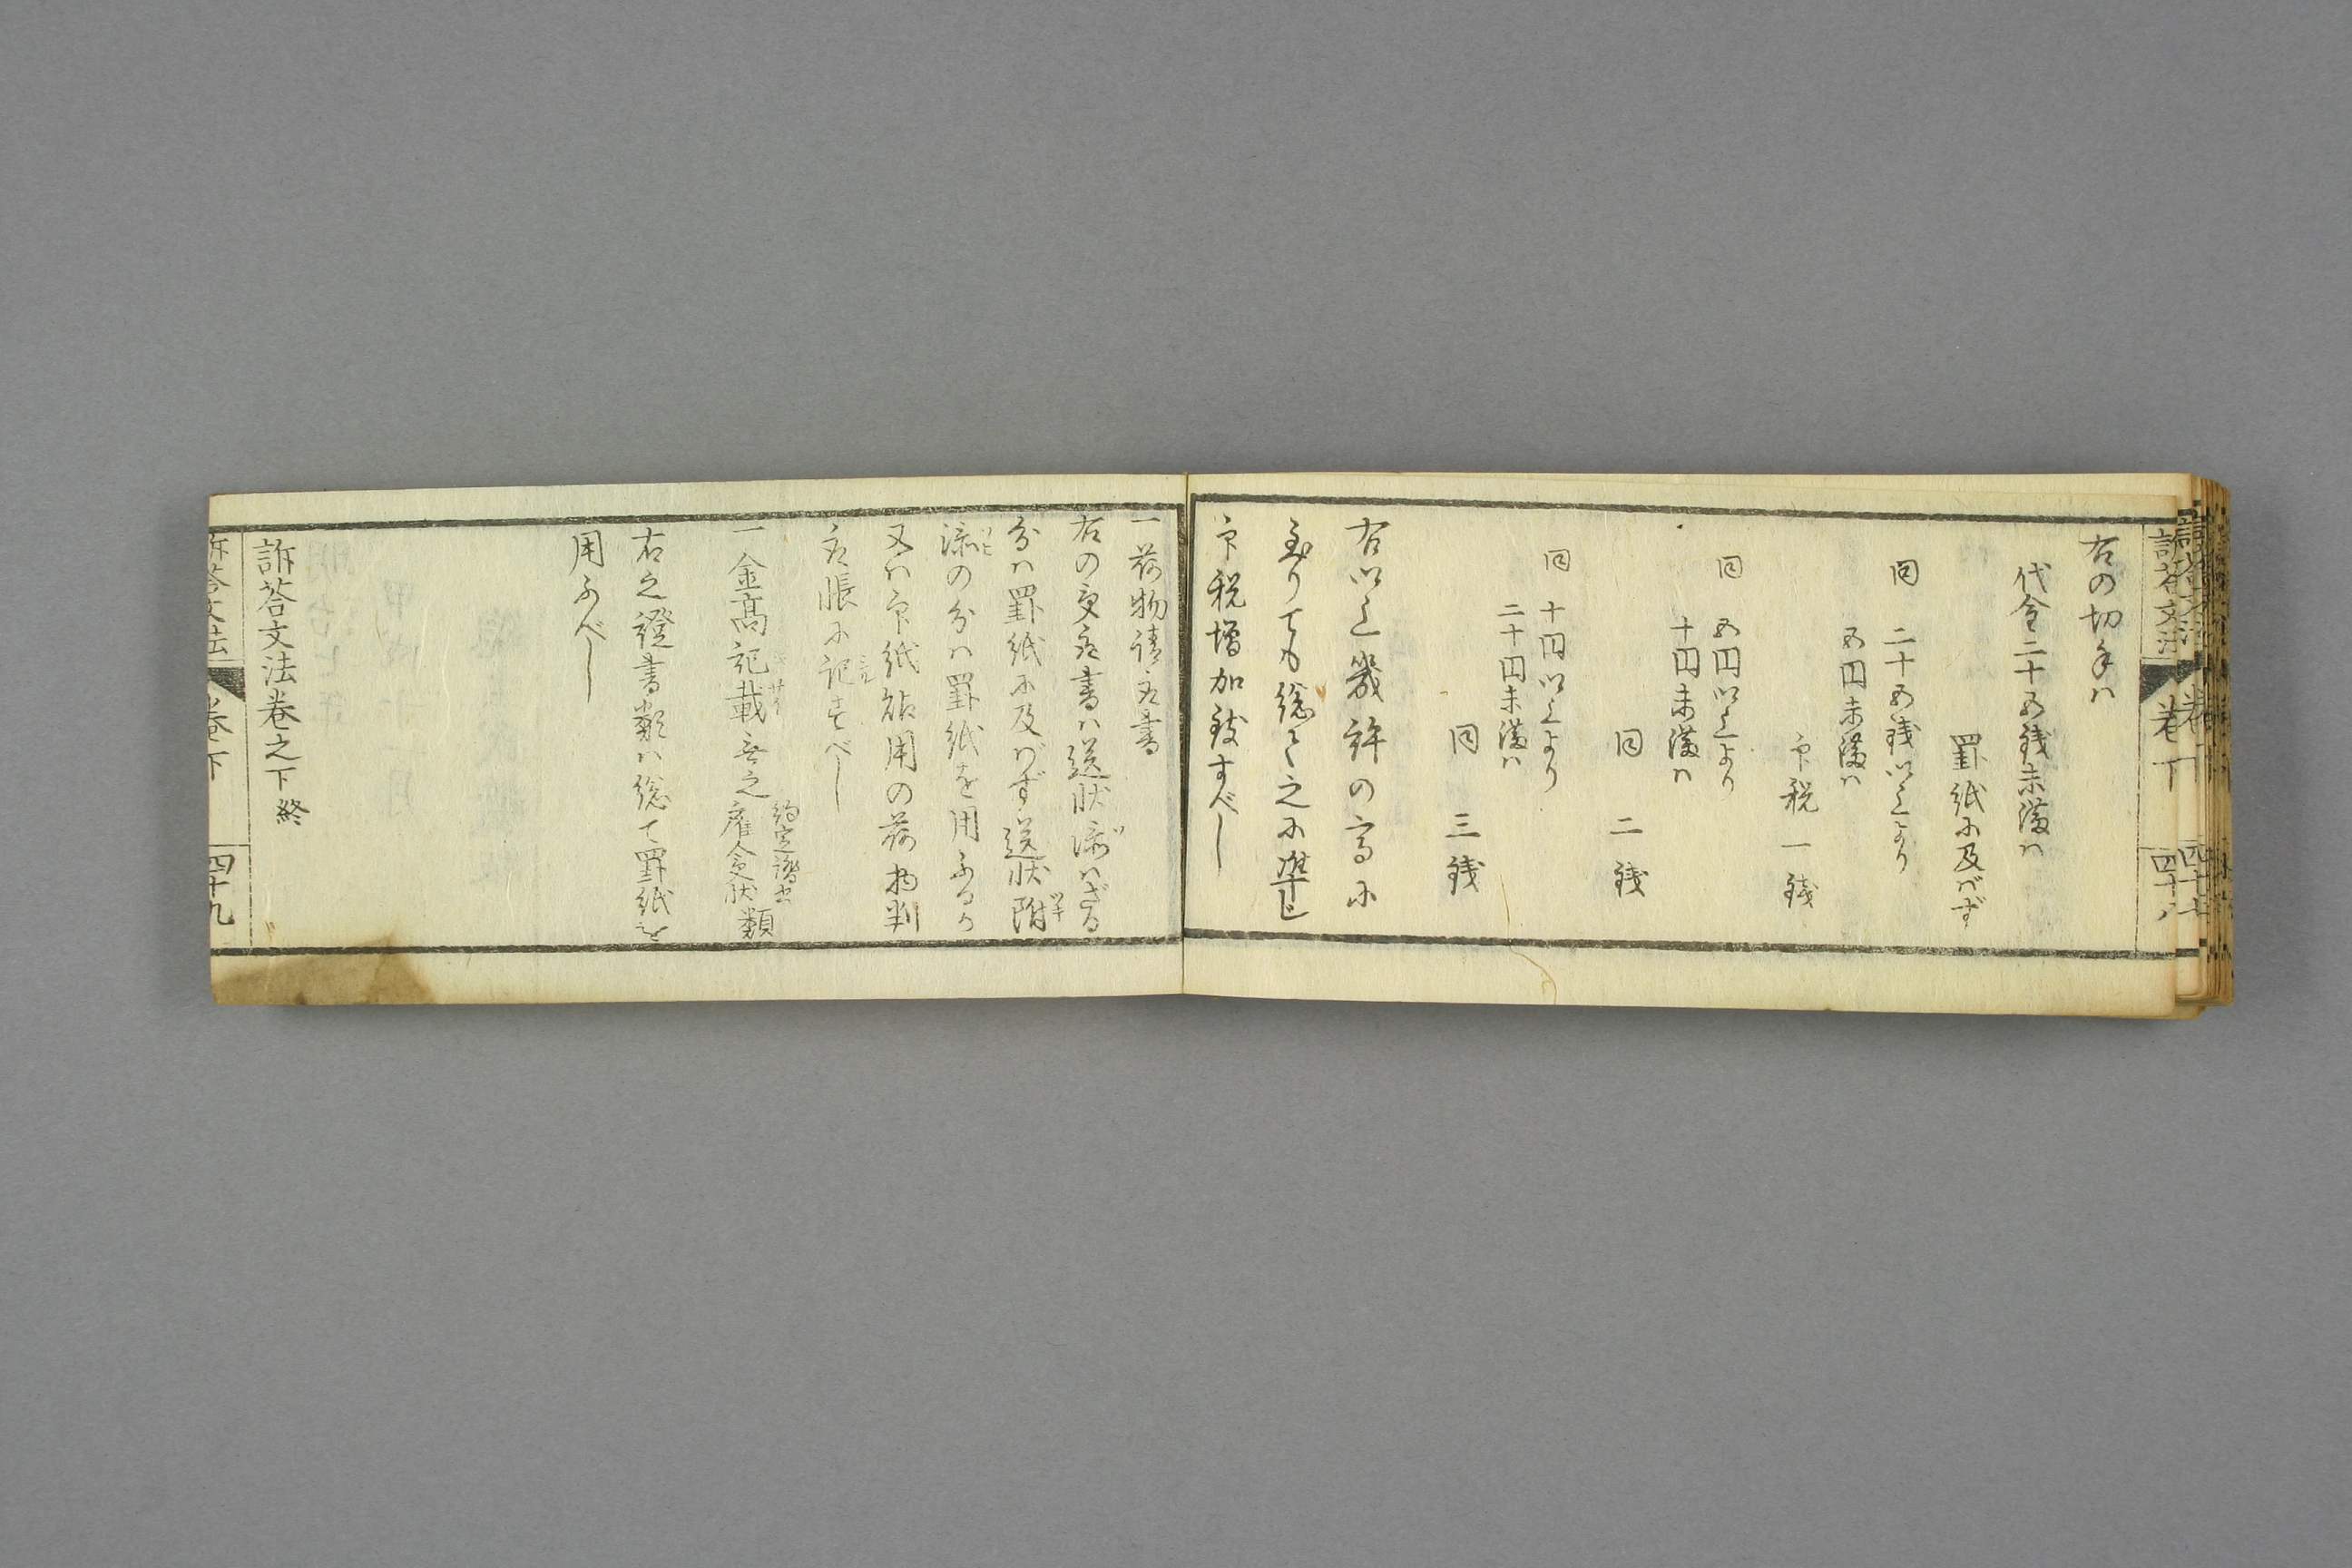 訴答文法
巻下
四十八
右の切手ハ
代金二十五銭未満ハ
罫紙に及バず
同 二十五銭以上より
五円未満ハ
印税 一銭
同 五円以上より
十円未満ハ
同 二銭
同 十円以上より
二十円未満ハ
同 三銭
右以上幾許の高に
至りても総て之に準じ
印税増加致すべし
一荷物請取書
右の受取書ハ送状添ハざる
分ハ罫紙に及バず送状附
添の分ハ罫紙を用ふるか
又ハ印紙貼用の荷物判
取帳に記すべし
一金高記載無之約定證書雇人令状類
右之證書類ハ総て罫紙を
用ふべし
訴荅文法巻之下終
訴荅文法
巻下
四十九